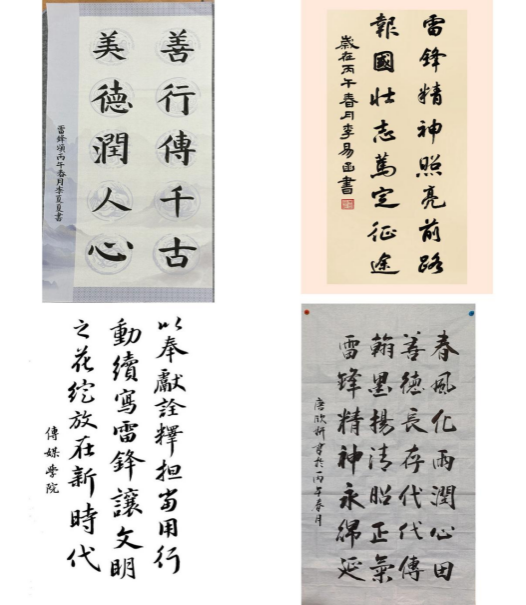 善行傳千古
美德潤人心
雷鋒頌丙午春月李夏夏書
雷鋒精神照亮前路
報國壯志篤定征途
歲在丙午春月李易函書
以奉獻詮釋担當用行
動續寫雷鋒讓文明
之花綻放在新時代
傳媒學院
春風化雨潤心田
善德長存代代傳
翰墨揚清昭正氣
雷鋒精神永綿延
唐欣妍書於丙午春月